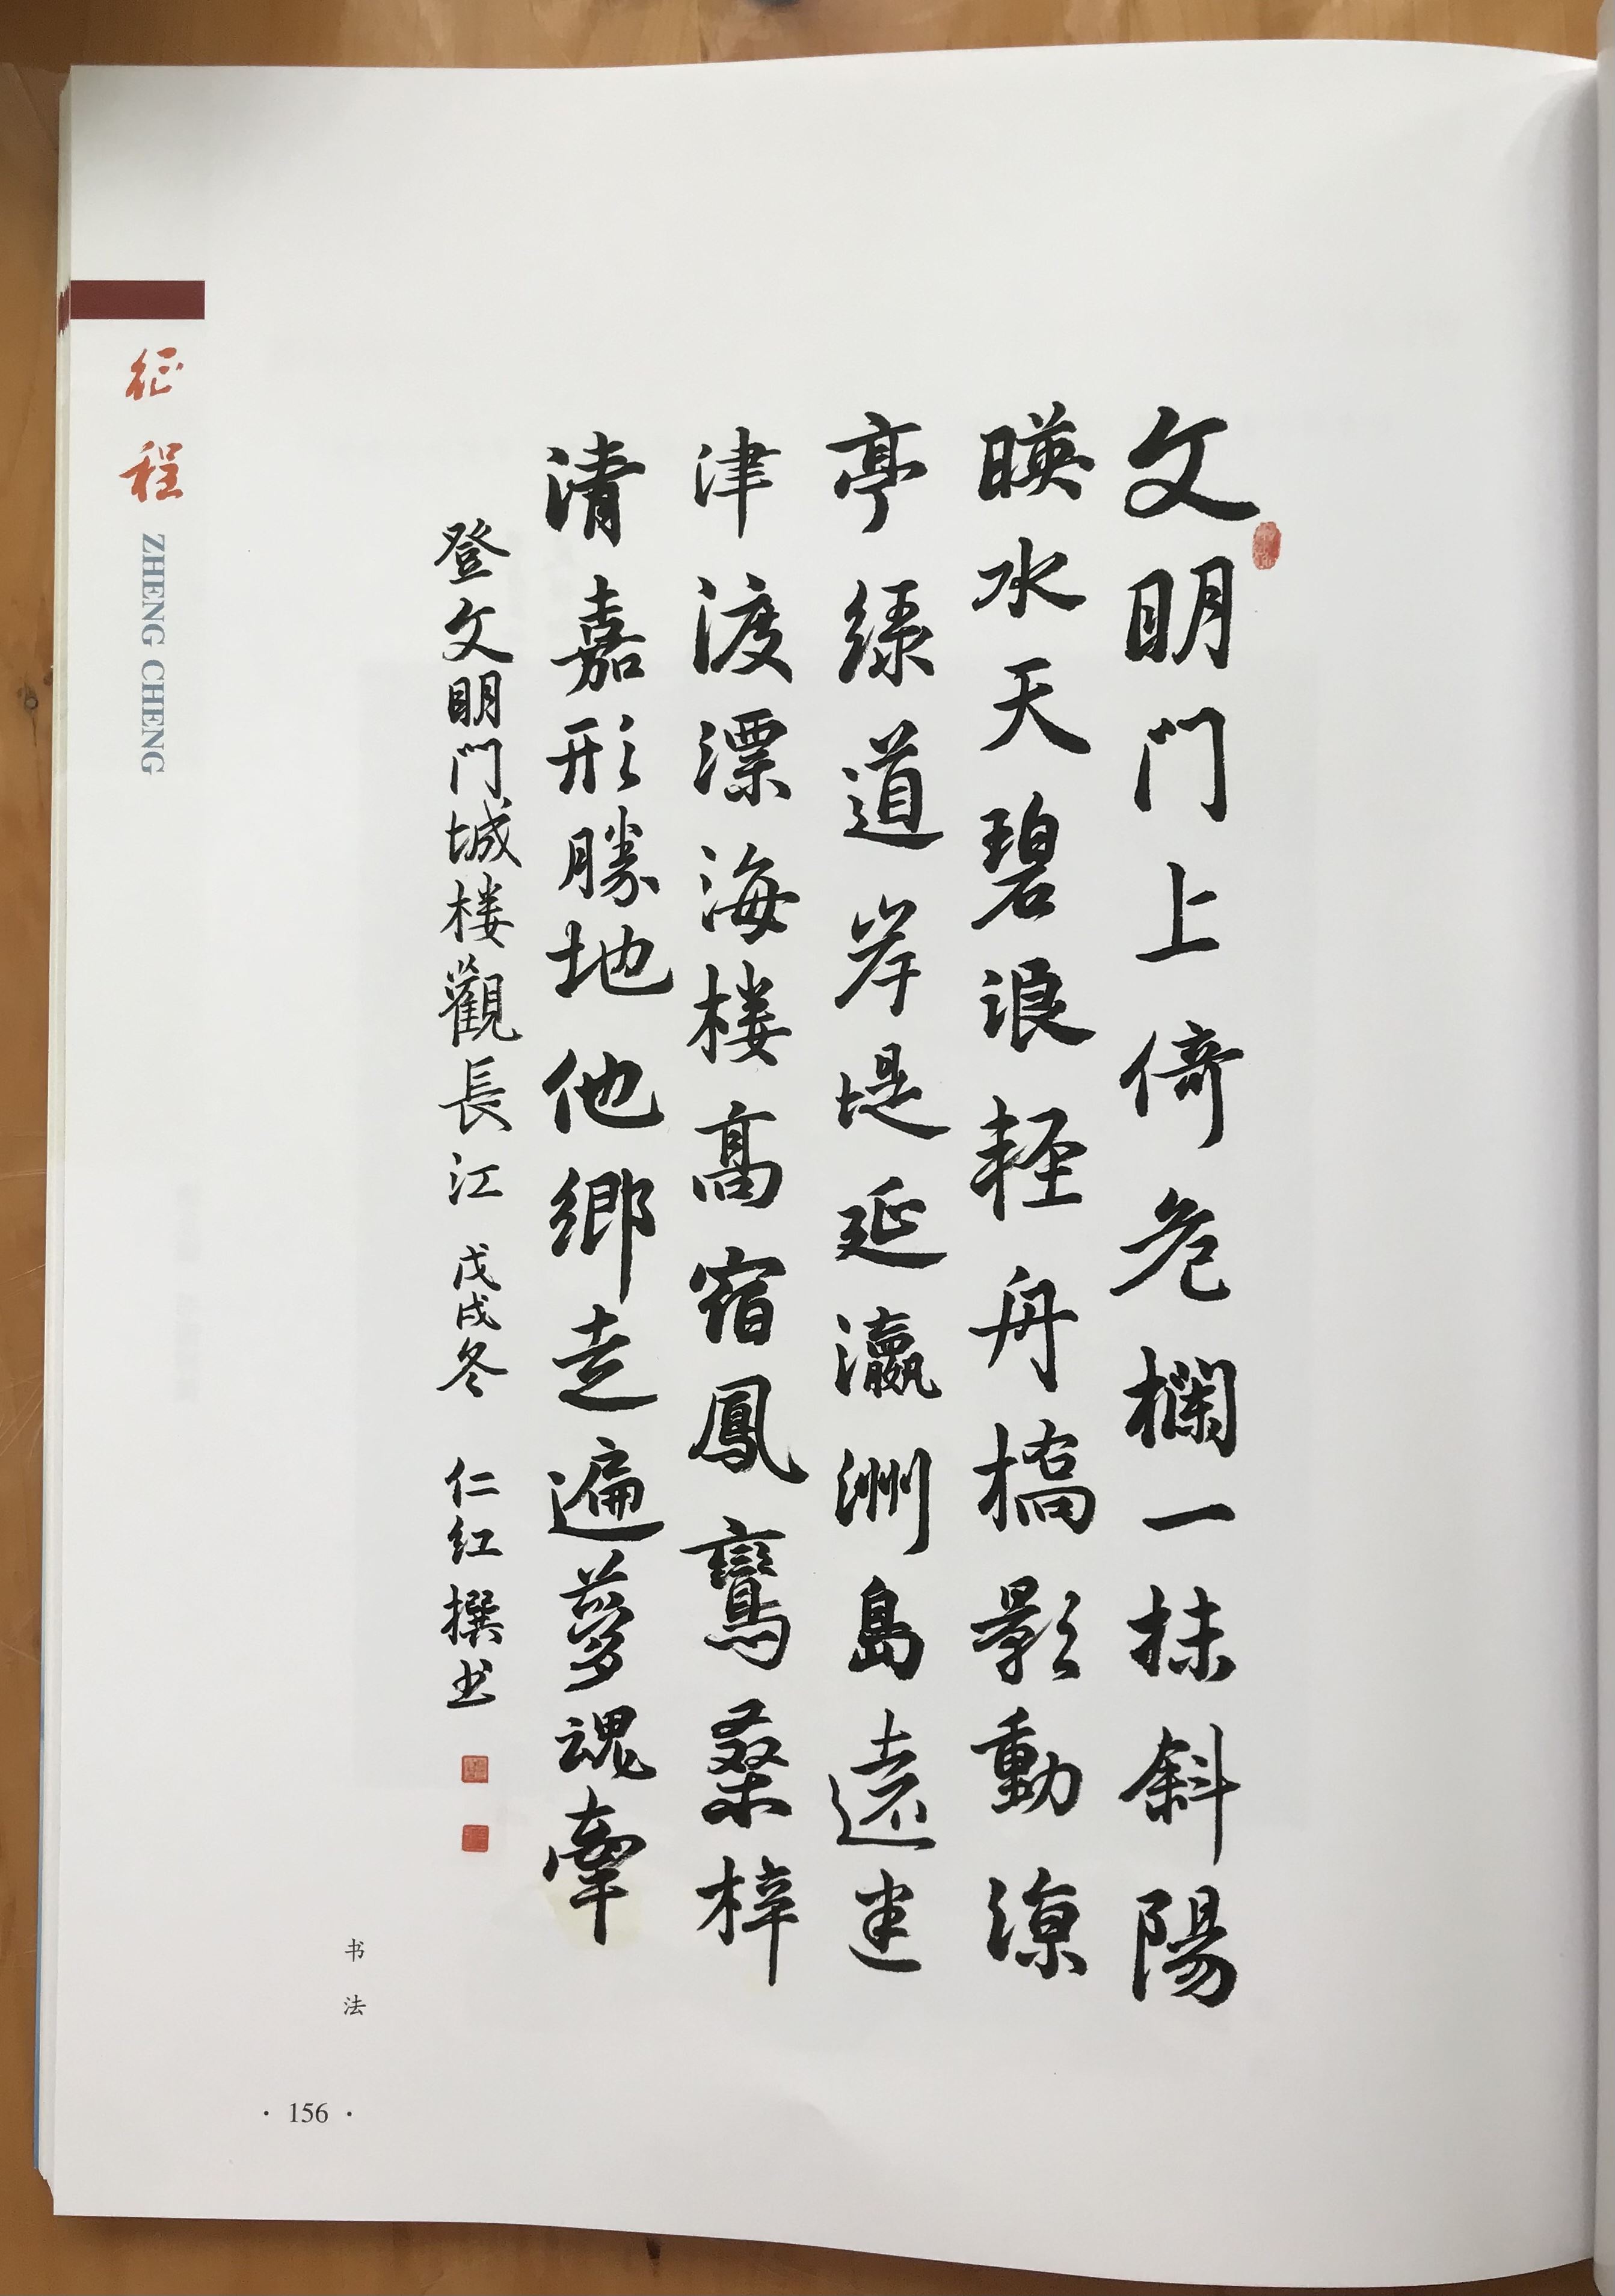 文明门上倚危欄一抹斜陽
暎水天碧浪輕舟橋影動涼
亭绿道岸堤延瀛洲島遠迷
津渡漂海楼高宿鳳鸞桑梓
清嘉形勝地他鄉走遍夢魂牽
登文明門城楼觀長江 戊戌冬 仁红撰书
征程
ZHENG CHENG
书法
· 156 ·